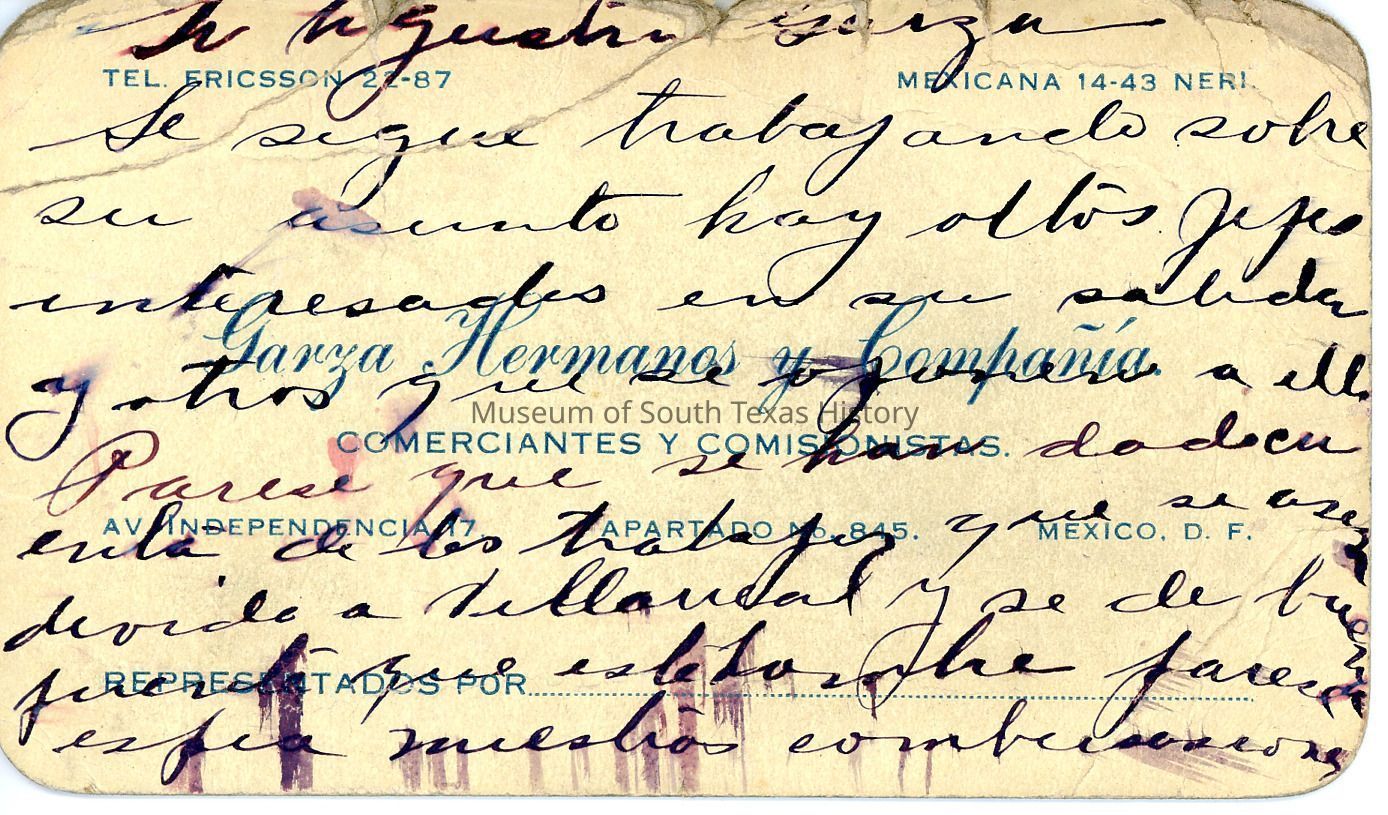 Sr Agustin Garza
TEL. ERICSSON 22-87 MEXICANA 14-43 NERI.
Se sigue trabajando sobre
su asunto hay altos jefes
interesados en su salida
Garza Hermanos y Compañía.
y otros que se oponen a ell
Museum of South Texas History
COMERCIANTES Y COMISIONISTAS.
Parese que se han dado cu
AV. INDEPENDENCIA 17. APARTADO No. 845. MEXICO, D. F.
enta de los trabajos y que se a
devido a Villareal y se de buena
REPRESENTADOS POR
fuente que este ombre parese
espia nuestras combinasiones